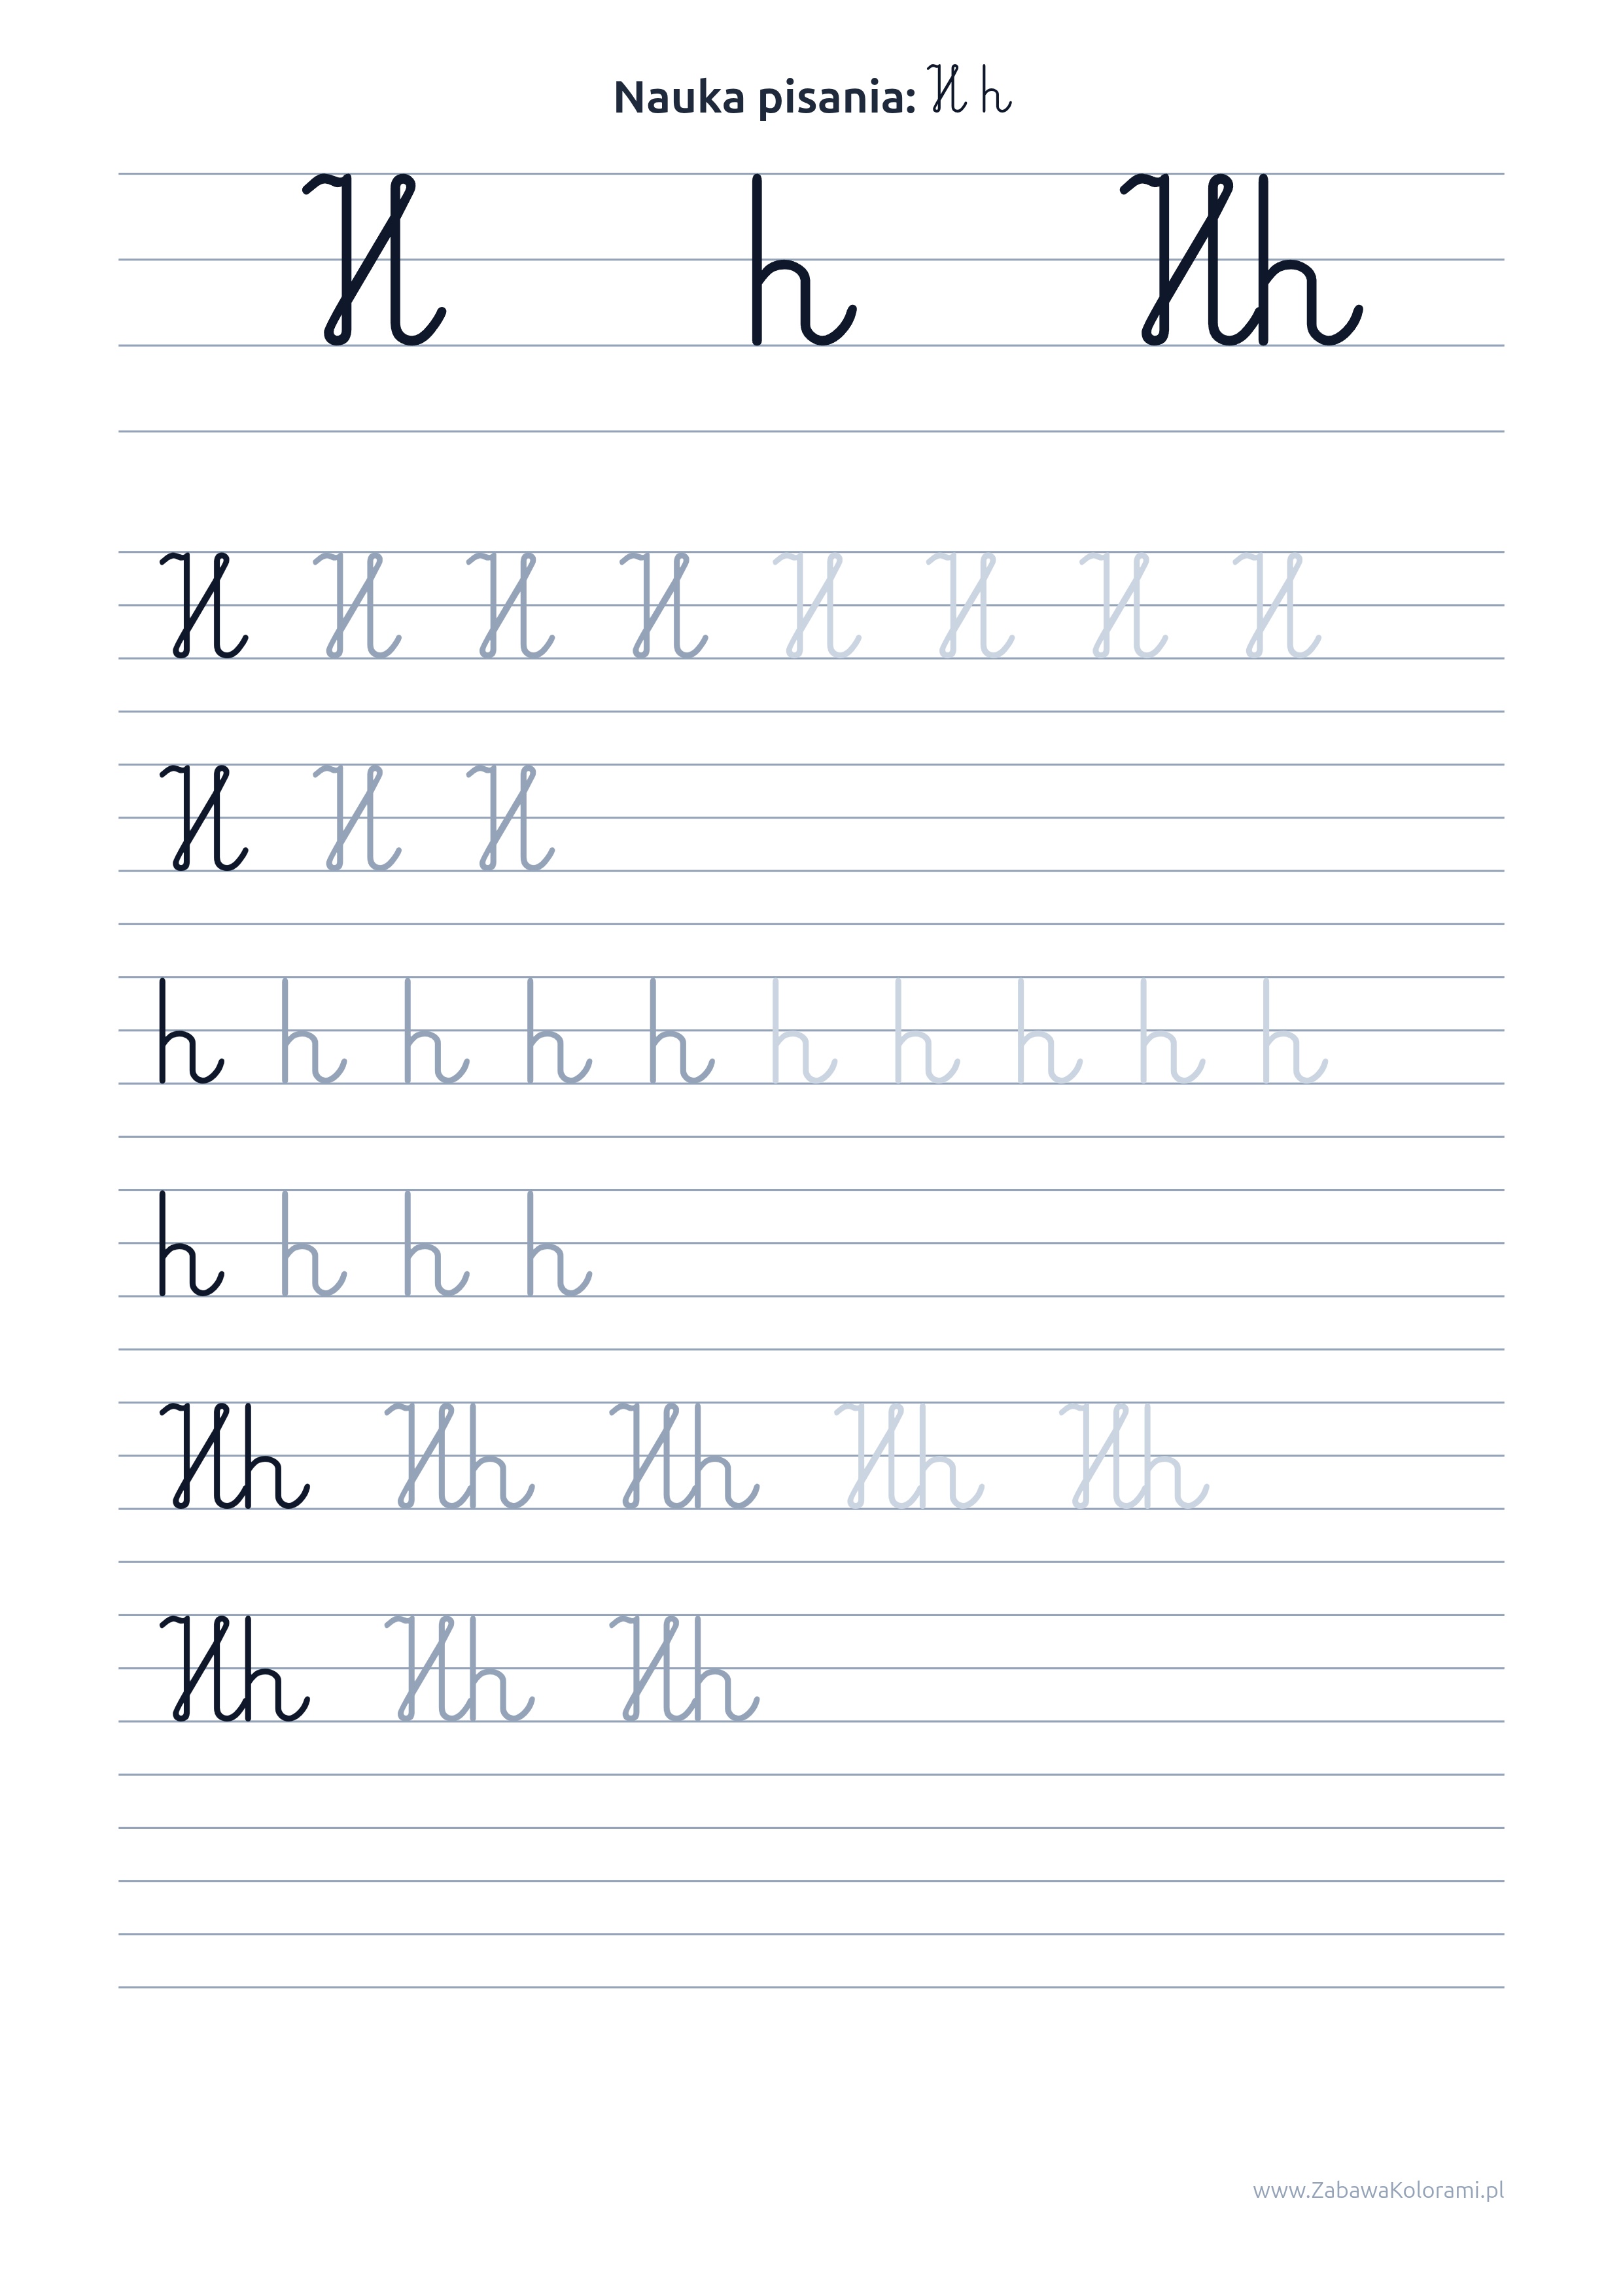 Nauka pisania: H h
H h Hh
H H H H H H H H
H H H
h h h h h h h h h h
h h h h
Hh Hh Hh Hh Hh
Hh Hh Hh
www.ZabawaKolorami.pl